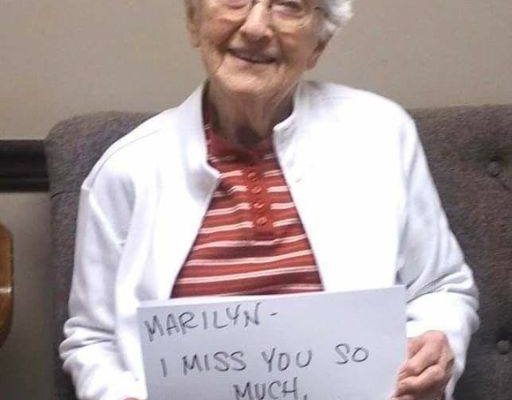 MARILYN-
I MISS YOU SO
MUCH.